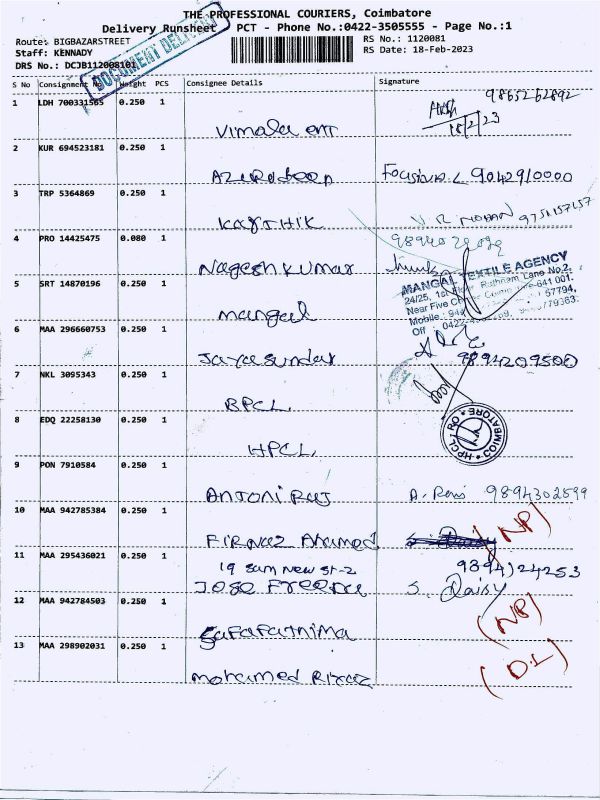 THE PROFESSIONAL COURIERS, Coimbatore
Delivery Runsheet PCT - Phone No.:0422-3505555 - Page No.:1
Route: BIGBAZARSTREET
RS No.: 1120081
Staff: KENNADY
RS Date: 18-Feb-2023
DRS No.: DCJB112008101
DOCUMENT DELIVERY
S No Consignment No Weight PCS Consignee Details Signature
1 LDH 700331565 0.250 1
9865262892
18/2/23
Vimala ent
2 KUR 694523181 0.250 1
9042910000
3 TRP 5364869 0.250 1
Karthik
V R MOHAN 9751157157
4 PRO 14425475 0.080 1
Nagesh kumar
5 SRT 14870196 0.250 1
MANGAL TEXTILE AGENCY
24/25, 1st Floor, Rathnam Lane No.2,
Near Five
Mobile
Off : 0422
mangal
6 MAA 296660753 0.250 1
Jayasundar 9894209500
7 NKL 3095343 0.250 1
BPCL
8 EDQ 22258130 0.250 1
HPCL RO COIMBATORE
HPCL
9 PON 7910584 0.250 1
Antoni Raj A. 9894302599
10 MAA 942785384 0.250 1
Firnaz Ahamed (NP)
11 MAA 295436021 0.250 1
19 Sum New St-2 9894124253
Jose S. Daisy
12 MAA 942784503 0.250 1
Safa Fathima (NP)
13 MAA 298902031 0.250 1
mohamed Riyaz (D.L)